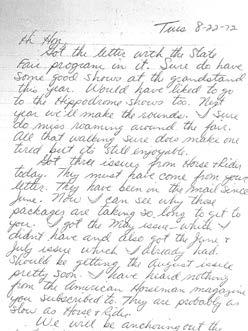 Tues 8-22-72
Hi Hon,
Got the letter with the State
Fair program in it. Sure do have
some good shows at the grandstand
this year. Would have liked to go
to the Hippodrome shows too. Next
year we'll make the rounds. I sure
do miss roaming around the fair.
All that walking sure does make one
tired but its still enjoyable.
Got three issues from Horse & Rider
today. They must have come from your
letter. They have been in the mail since
June. Now I can see why those
packages are taking so long to get to
you. I got the May issue which I
didn't have and also got the June &
July issue which I already had.
Should be getting the August issue
pretty soon. I have heard nothing
from the American Horseman magazine
you subscribed to. They are probably as
slow as Horse & Rider.
We will be anchoring out the